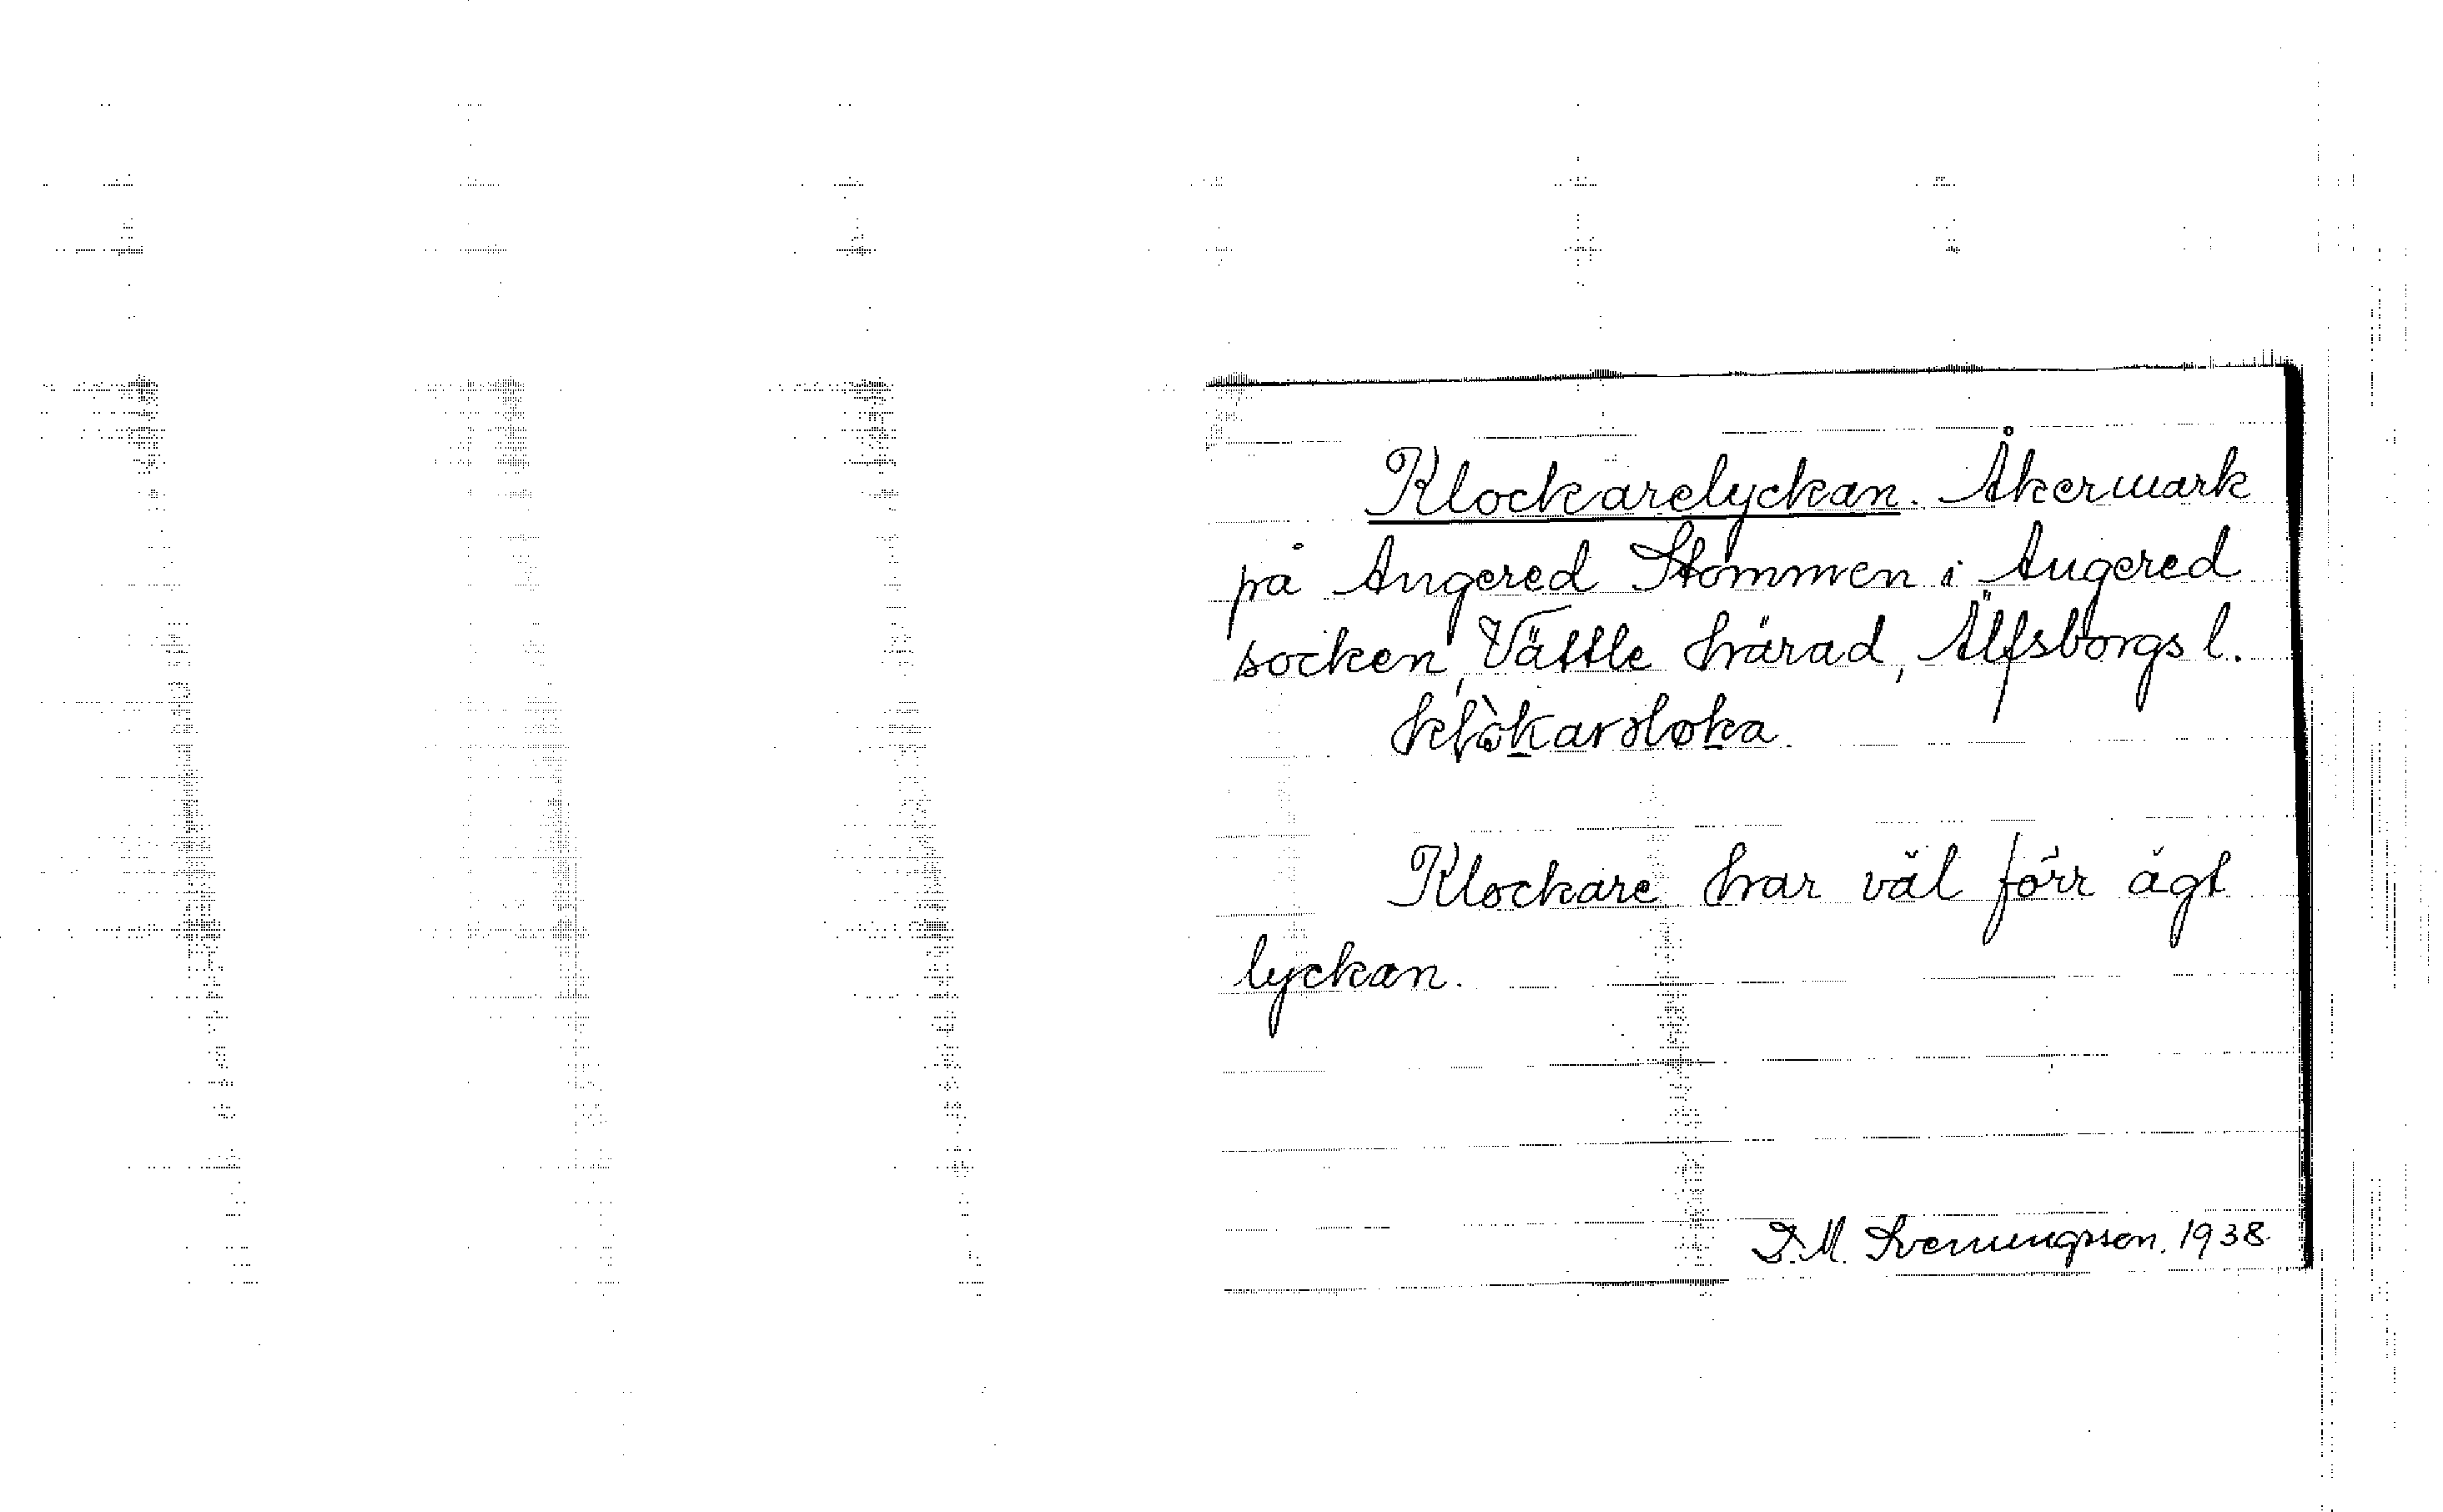 Klockarelyckan. Åkermark
på Angered Stommen i Angered
socken, Vättle härad, Älfsborgs l.
Klockare har väl förr ägt
lyckan.
D.M. Svenungsson. 1938.